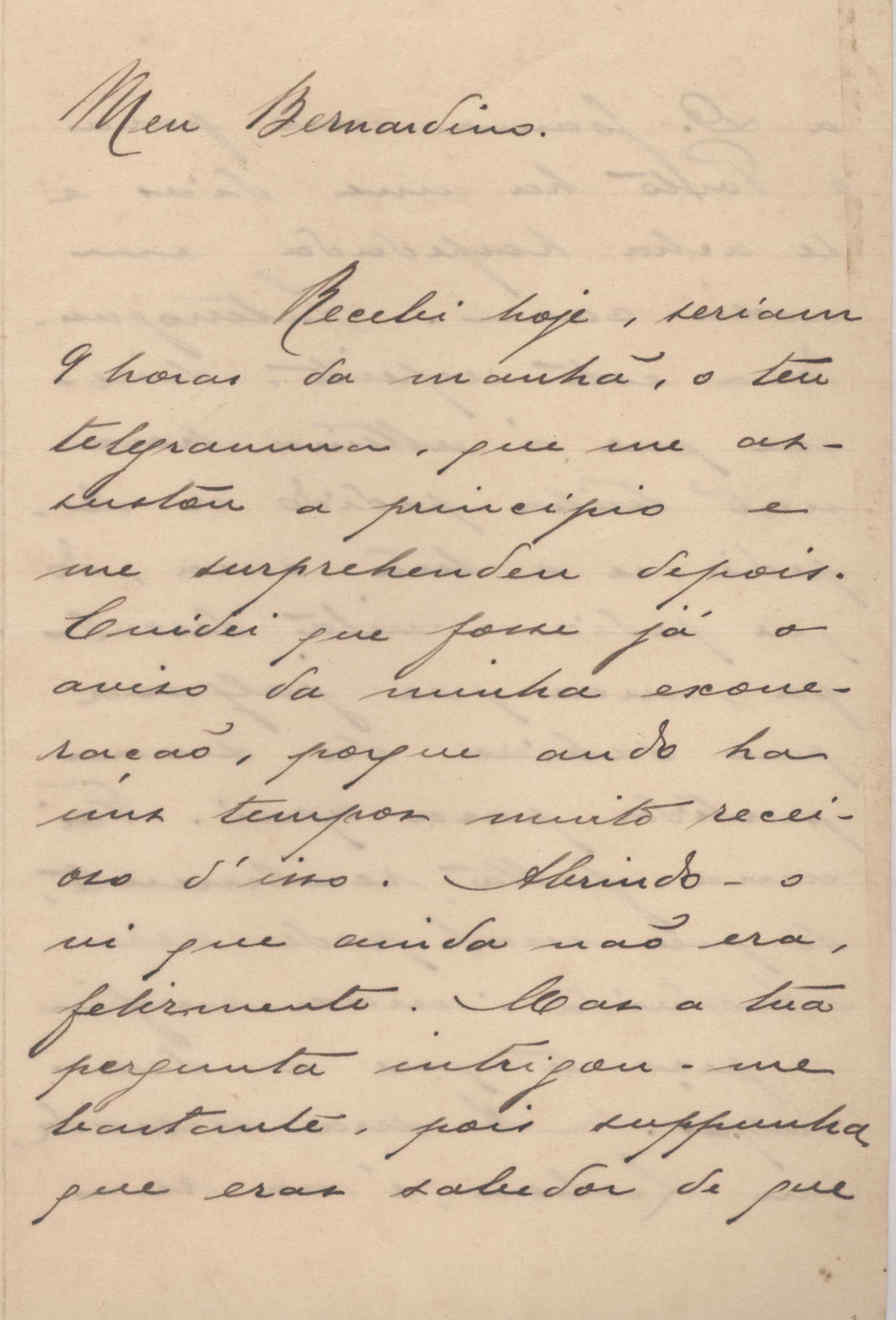 Meu Bernardino.
Recebi hoje, seriam
9 horas da manhã, o teu
telegramma, que me as-
sustou a principio e
me surprehendeu depois.
Cuidei que fosse já o
aviso da minha exone-
ração, porque ando ha
úns tempos muito recei-
oso d'isso. Abrindo-o
vi que ainda não era,
felizmente. Mas a tua
pergunta intrigou-me
bastante, pois suppunha
que eras sabedor de que